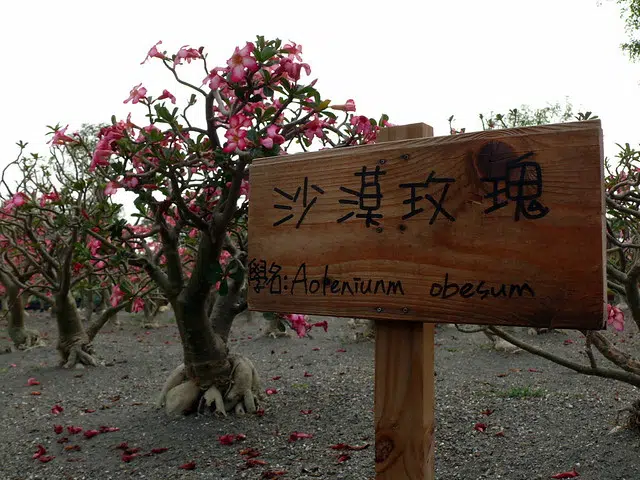 沙漠玫瑰
學名:Aoteniunm obesum